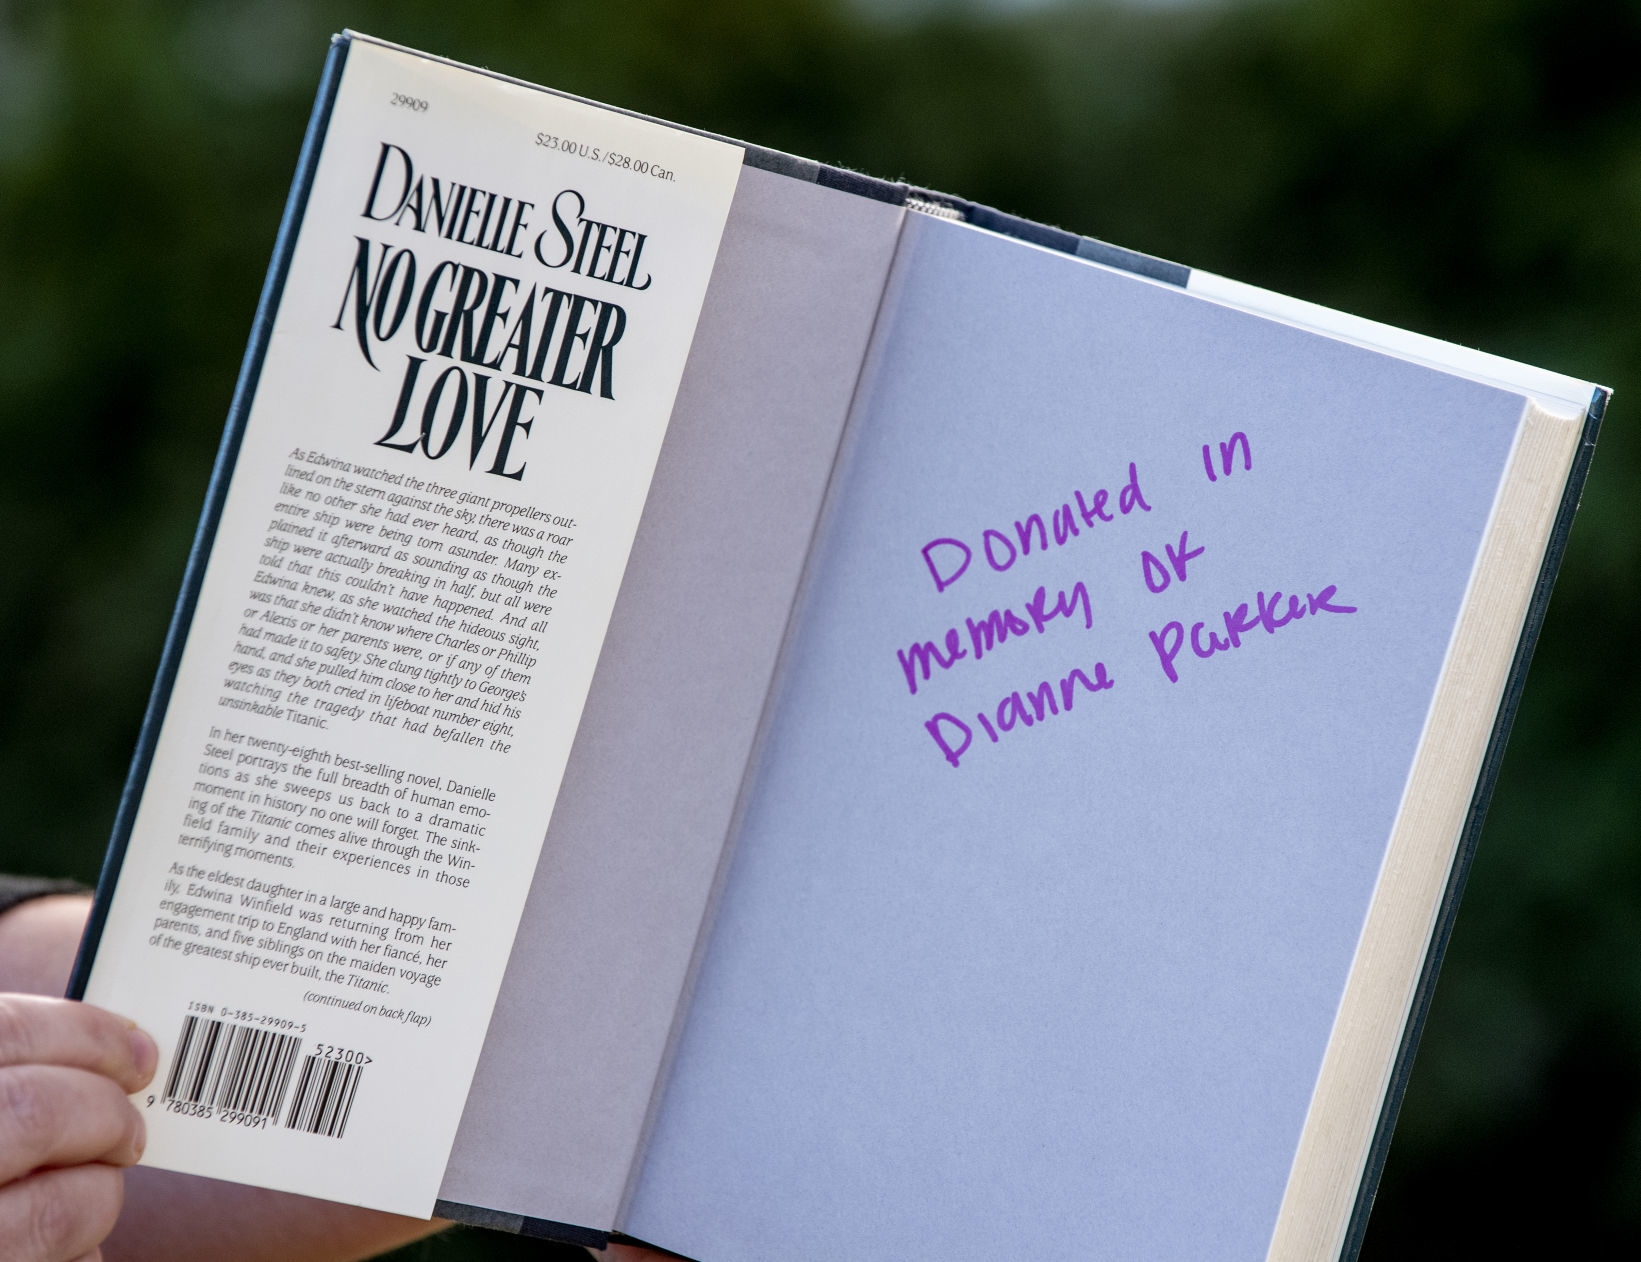 29909
$23.00 U.S./$28.00 Can.
DANIELLE STEEL
NO GREATER
LOVE
As Edwina watched the three giant propellers out-
lined on the stern against the sky, there was a roar
like no other she had ever heard, as though the
entire ship were being torn asunder. Many ex-
plained it afterward as sounding as though the
ship were actually breaking in half, but all were
told that this couldn't have happened. And all
Edwina knew, as she watched the hideous sight,
was that she didn't know where Charles or Phillip
or Alexis or her parents were, or if any of them
had made it to safety. She clung tightly to George's
hand, and she pulled him close to her and hid his
eyes as they both cried in lifeboat number eight,
watching the tragedy that had befallen the
unsinkable Titanic.
In her twenty-eighth best-selling novel, Danielle
Steel portrays the full breadth of human emo-
tions as she sweeps us back to a dramatic
moment in history no one will forget. The sink-
ing of the Titanic comes alive through the Win-
field family and their experiences in those
terrifying moments.
As the eldest daughter in a large and happy fam-
ily, Edwina Winfield was returning from her
engagement trip to England with her fiancé, her
parents, and five siblings on the maiden voyage
of the greatest ship ever built, the Titanic.
(continued on back flap)
ISBN 0-385-29909-5
52300>
9 780385 299091
Donated in
memory of
Dianne Parker